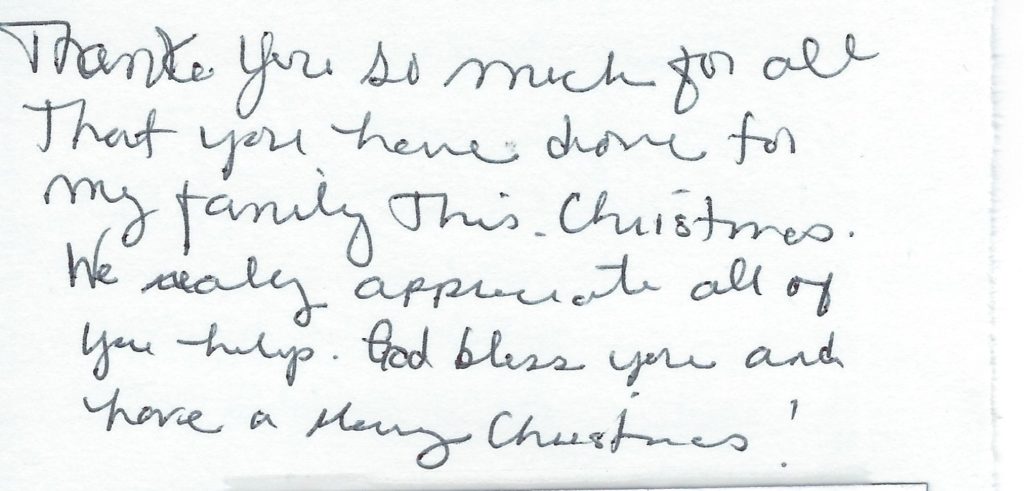 Thank you so much for all
That you have done for
my family This Christmas.
We really appreciate all of
you help. God bless you and
have a Merry Christmas!